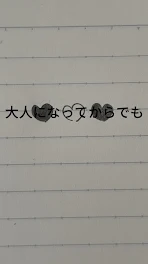 大人になってからでも